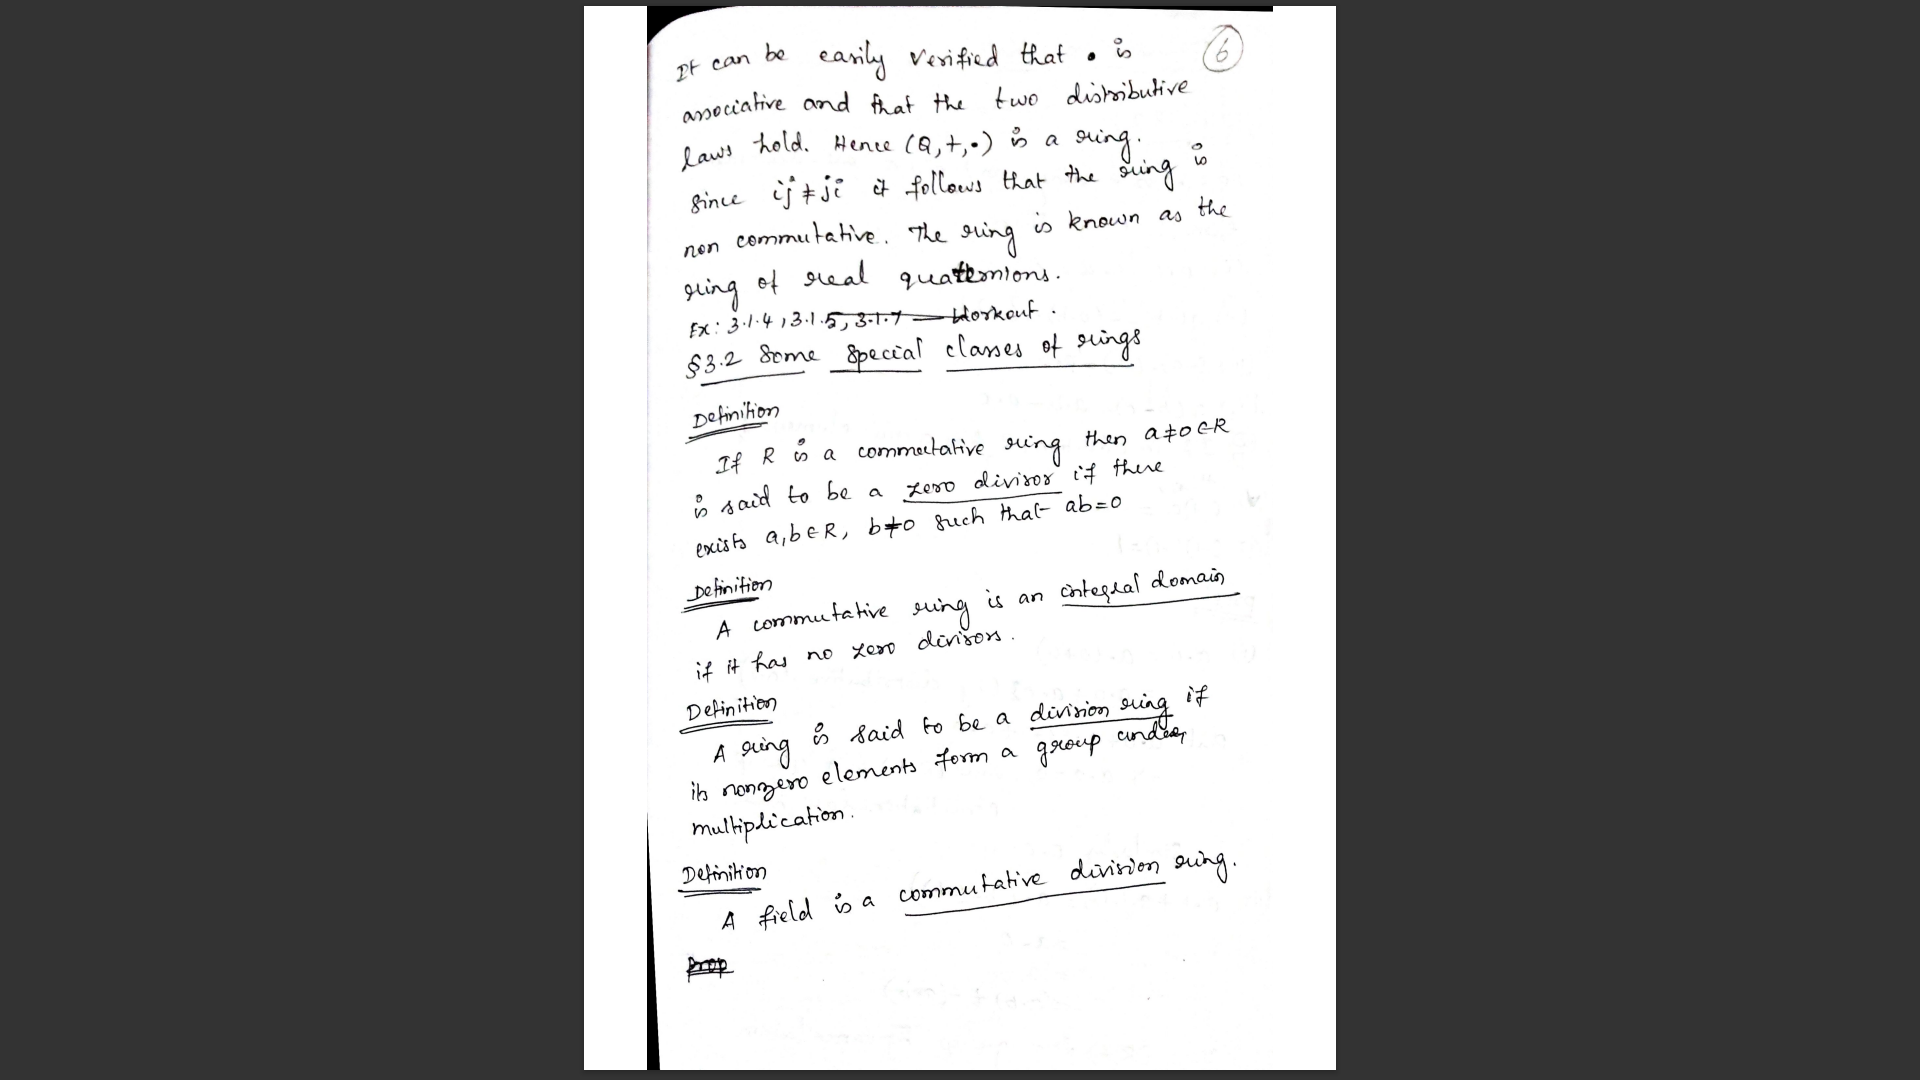 It can be easily verified that • is
6
associative and that the two distributive
laws hold. Hence (Q,+,•) is a ring.
Since ij ≠ ji it follows that the ring is
non commutative. The ring is known as the
ring of real quaternions.
Ex: 3.1.4, 3.1.5, 3.1.7 — Workout.
§3.2 Some Special classes of rings
Definition
If R is a commutative ring then a≠0∈R
is said to be a zero divisor if there
exists a,b∈R, b≠0 such that ab=0
Definition
A commutative ring is an integral domain
if it has no zero divisors.
Definition
A ring is said to be a division ring if
its nonzero elements form a group under
multiplication.
Definition
A field is a commutative division ring.
Prop